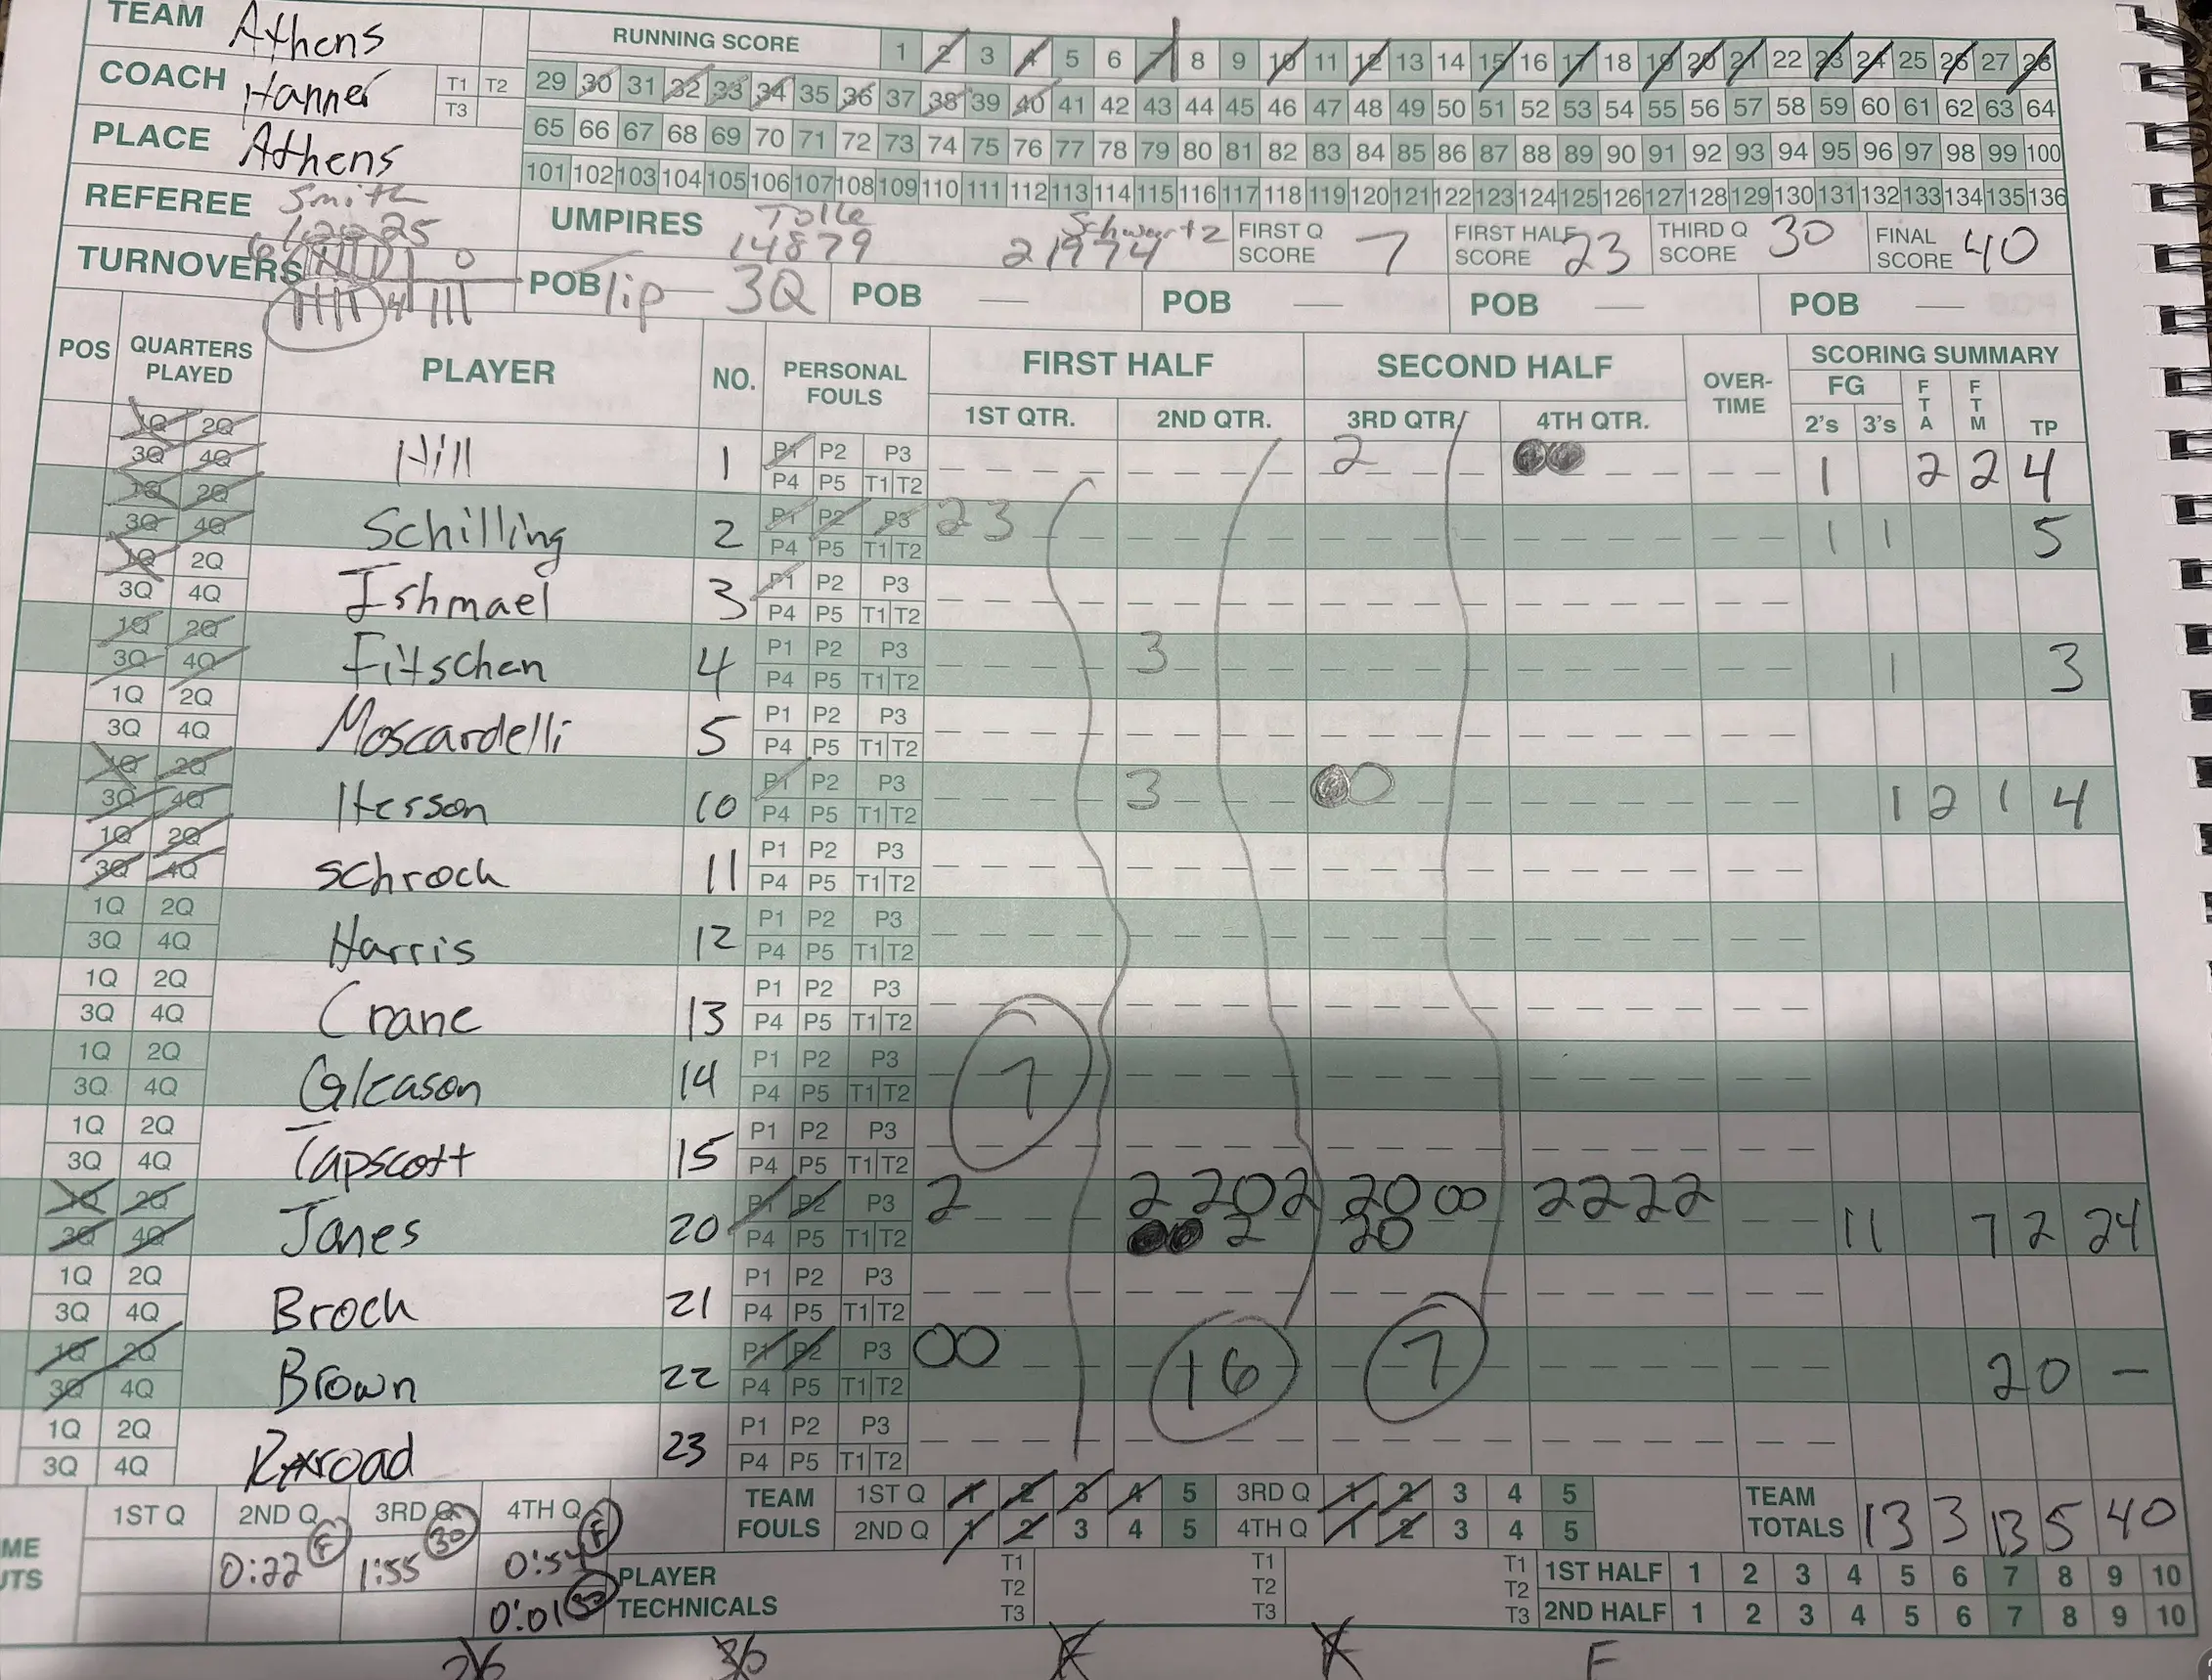 TEAM Athens
RUNNING SCORE 1 2 3 4 5 6 7 8 9 10 11 12 13 14 15 16 17 18 19 20 21 22 23 24 25 26 27 28
COACH Hanner T1 T2 T3
29 30 31 32 33 34 35 36 37 38 39 40 41 42 43 44 45 46 47 48 49 50 51 52 53 54 55 56 57 58 59 60 61 62 63 64
PLACE Athens
65 66 67 68 69 70 71 72 73 74 75 76 77 78 79 80 81 82 83 84 85 86 87 88 89 90 91 92 93 94 95 96 97 98 99 100
101 102 103 104 105 106 107 108 109 110 111 112 113 114 115 116 117 118 119 120 121 122 123 124 125 126 127 128 129 130 131 132 133 134 135 136
REFEREE Smith
UMPIRES Tolle 14879 Schwartz 21974
FIRST Q SCORE 7 FIRST HALF SCORE 23 THIRD Q SCORE 30 FINAL SCORE 40
TURNOVERS 0
POB lip — 3Q POB — POB — POB — POB —
POS QUARTERS PLAYED PLAYER NO. PERSONAL FOULS FIRST HALF SECOND HALF OVER-TIME SCORING SUMMARY
1ST QTR. 2ND QTR. 3RD QTR. 4TH QTR. FG 2's 3's FTA FTM TP
1Q 2Q 3Q 4Q Hill 1 P1 P2 P3 P4 P5 T1 T2 2 1 2 2 4
1Q 2Q 3Q 4Q Schilling 2 P1 P2 P3 P4 P5 T1 T2 2 3 1 1 5
1Q 2Q 3Q 4Q Ishmael 3 P1 P2 P3 P4 P5 T1 T2
1Q 2Q 3Q 4Q Fitschen 4 P1 P2 P3 P4 P5 T1 T2 3 1 3
1Q 2Q 3Q 4Q Moscardelli 5 P1 P2 P3 P4 P5 T1 T2
1Q 2Q 3Q 4Q 10 P1 P2 P3 P4 P5 T1 T2 3 1 2 1 4
1Q 2Q 3Q 4Q Schrock 11 P1 P2 P3 P4 P5 T1 T2
1Q 2Q 3Q 4Q Harris 12 P1 P2 P3 P4 P5 T1 T2
1Q 2Q 3Q 4Q Crane 13 P1 P2 P3 P4 P5 T1 T2
1Q 2Q 3Q 4Q Gleason 14 P1 P2 P3 P4 P5 T1 T2 7
1Q 2Q 3Q 4Q Tapscott 15 P1 P2 P3 P4 P5 T1 T2
1Q 2Q 3Q 4Q Janes 20 P1 P2 P3 P4 P5 T1 T2 2 2 2 0 2 2 2 0 0 0 2 0 2 2 2 2 11 7 2 24
1Q 2Q 3Q 4Q Broch 21 P1 P2 P3 P4 P5 T1 T2
1Q 2Q 3Q 4Q Brown 22 P1 P2 P3 P4 P5 T1 T2 0 0 16 7 2 0 —
1Q 2Q 3Q 4Q Rexroad 23 P1 P2 P3 P4 P5 T1 T2
1ST Q 2ND Q 3RD Q 4TH Q
TEAM FOULS 1ST Q 1 2 3 4 5 3RD Q 1 2 3 4 5
2ND Q 1 2 3 4 5 4TH Q 1 2 3 4 5
TEAM TOTALS 13 3 13 5 40
0:22 F 1:55 30 0:54 F
0:01 30
PLAYER TECHNICALS T1 T2 T3 T1 T2 T3 T1 T2 T3
1ST HALF 1 2 3 4 5 6 7 8 9 10
2ND HALF 1 2 3 4 5 6 7 8 9 10
F